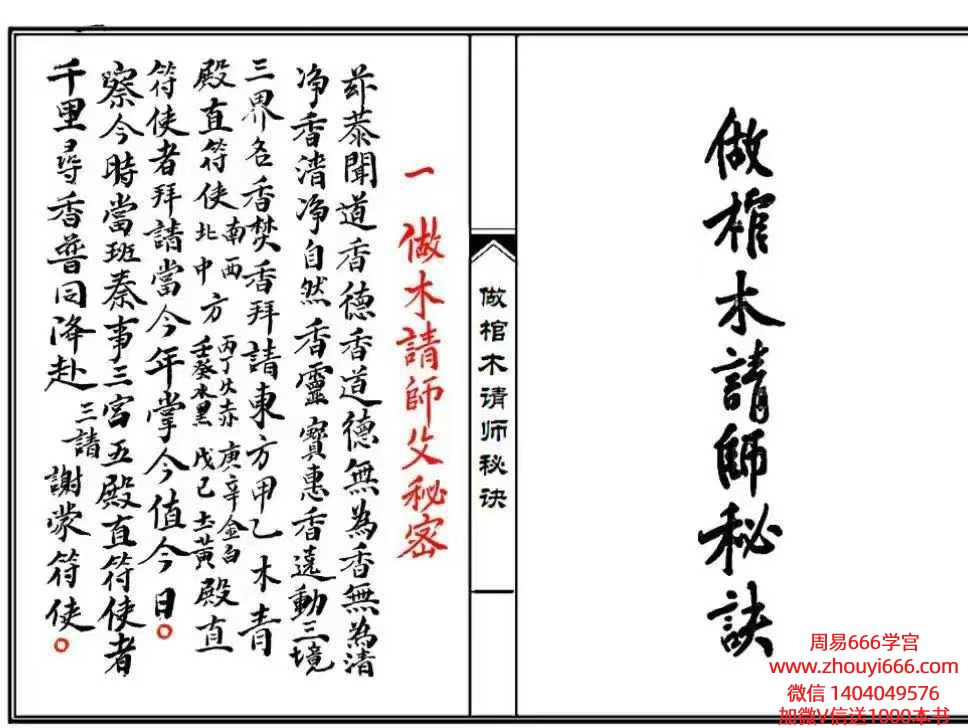 做棺木請師秘訣
做棺木请师秘诀
一 做木請師父秘密
茶聞道香德香道德無為香無為清
净香清净自然香靈寶惠香遶動三境
三界各香焚香拜請東方甲乙木青
殿直符使南西北中方丙丁火赤庚辛金白壬癸水黑戊己土黃殿直
符使者拜請當今年掌今值今日
察今時當班奏事三宮五殿直符使者
千里尋香普同降赴三請謝蒙符使
周易666学宫
www.zhouyi666.com
微信 1404049576
加微V信送1000本书